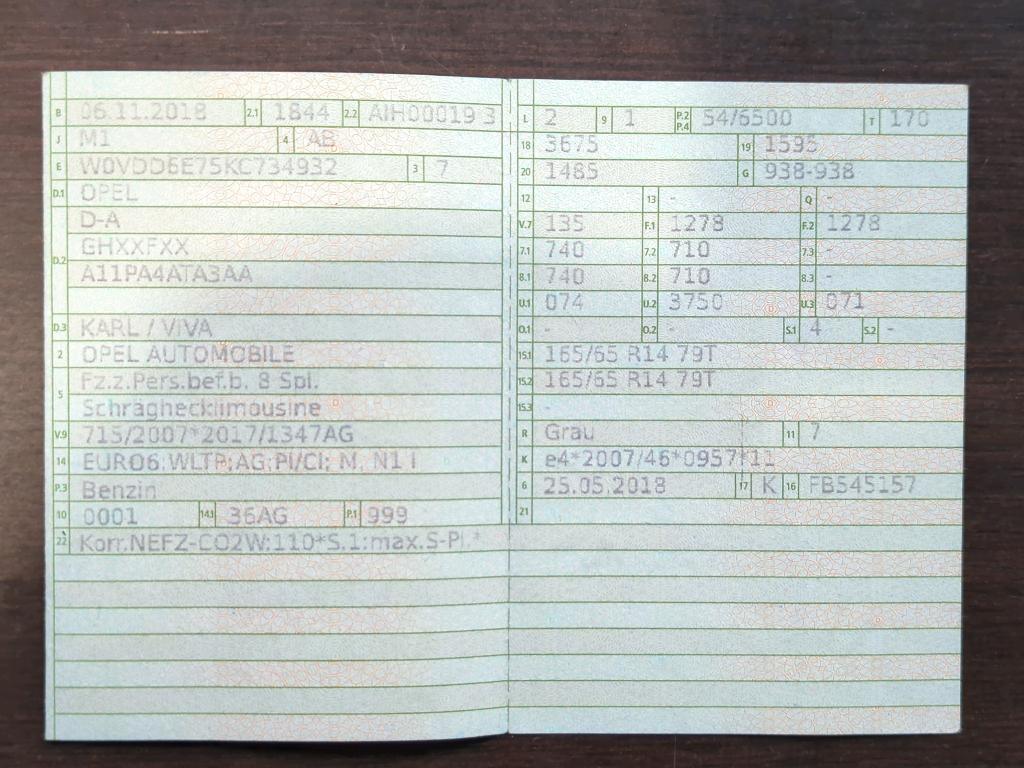 B 06.11.2018 2.1 1844 2.2 AIH00019 3
J M1 4 AB
E W0VDD6E75KC734932 3 7
D.1 OPEL
D-A
D.2 GHXXFXX
A11PA4ATA3AA
D.3 KARL / VIVA
2 OPEL AUTOMOBILE
5 Fz.z.Pers.bef.b. 8 Spl.
Schräghecklimousine
V.9 715/2007*2017/1347AG
14 EURO6;WLTP;AG;PI/CI; M, N1 I
P.3 Benzin
10 0001 14.1 36AG P.1 999
22 Korr.NEFZ-CO2W:110*S.1:max.S-Pl.*
L 2 9 1 P.2 P.4 54/6500 T 170
18 3675 19 1595
20 1485 G 938-938
12 13 - Q -
V.7 135 F.1 1278 F.2 1278
7.1 740 7.2 710 7.3 -
8.1 740 8.2 710 8.3 -
U.1 074 U.2 3750 U.3 071
O.1 - O.2 - S.1 4 S.2 -
15.1 165/65 R14 79T
15.2 165/65 R14 79T
15.3 -
R Grau 11 7
K e4*2007/46*0957*11
6 25.05.2018 17 K 16 FB545157
21